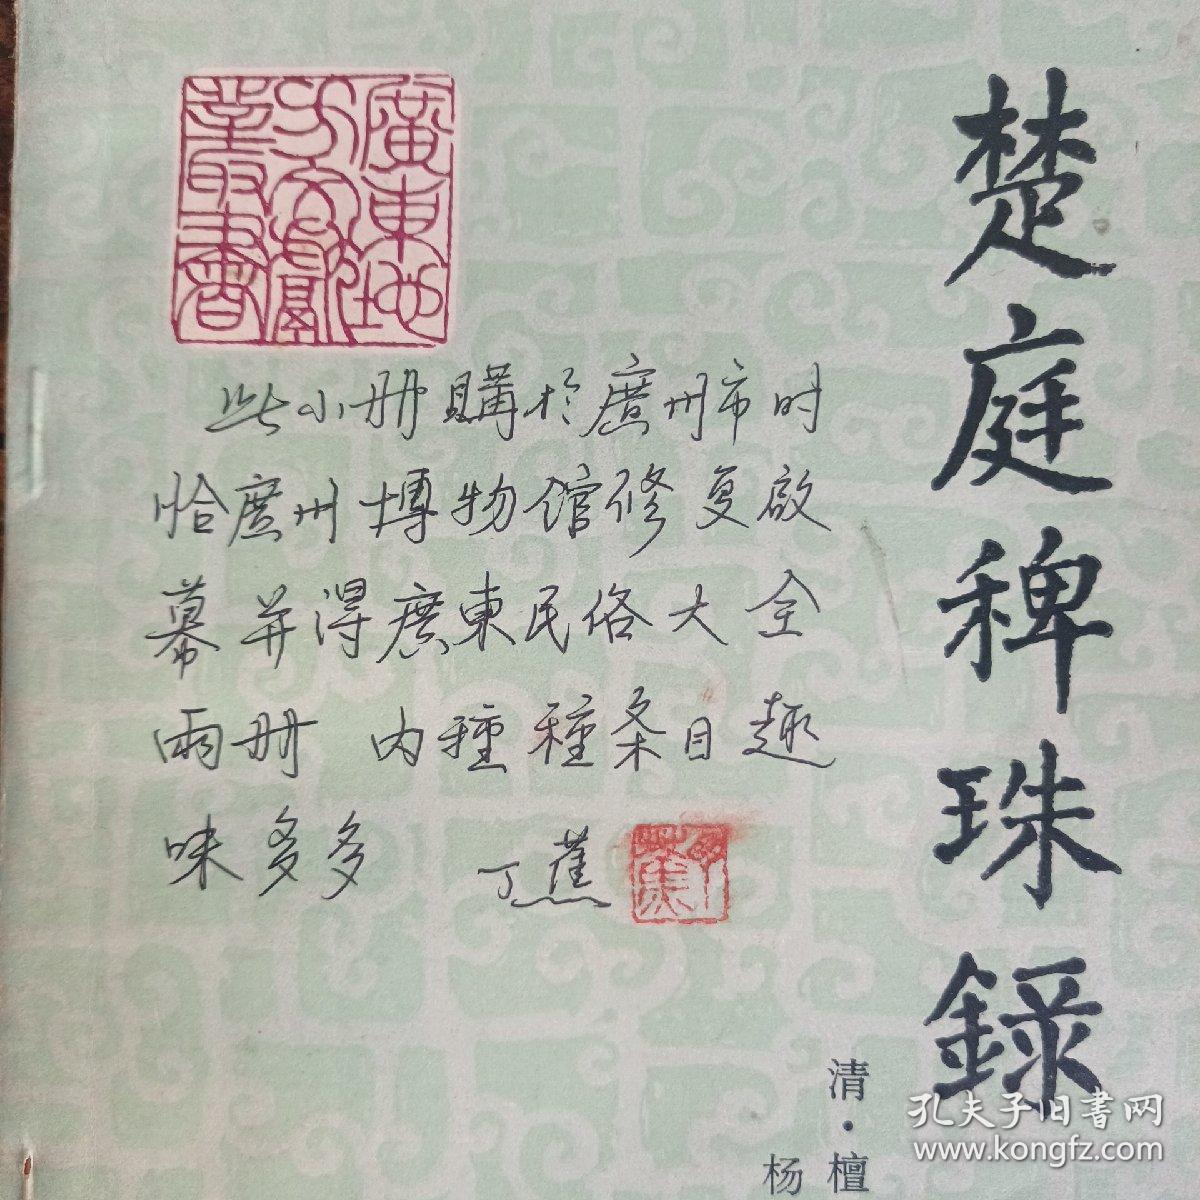 楚庭稗珠録
廣東地
方文獻
叢書
此小册購於廣州市时
恰廣州博物馆修复啟
幕并得廣東民俗大全
兩册 内種種条目趣
味多多 丁蕉
清·檀
杨
孔夫子旧书网
www.kongfz.com